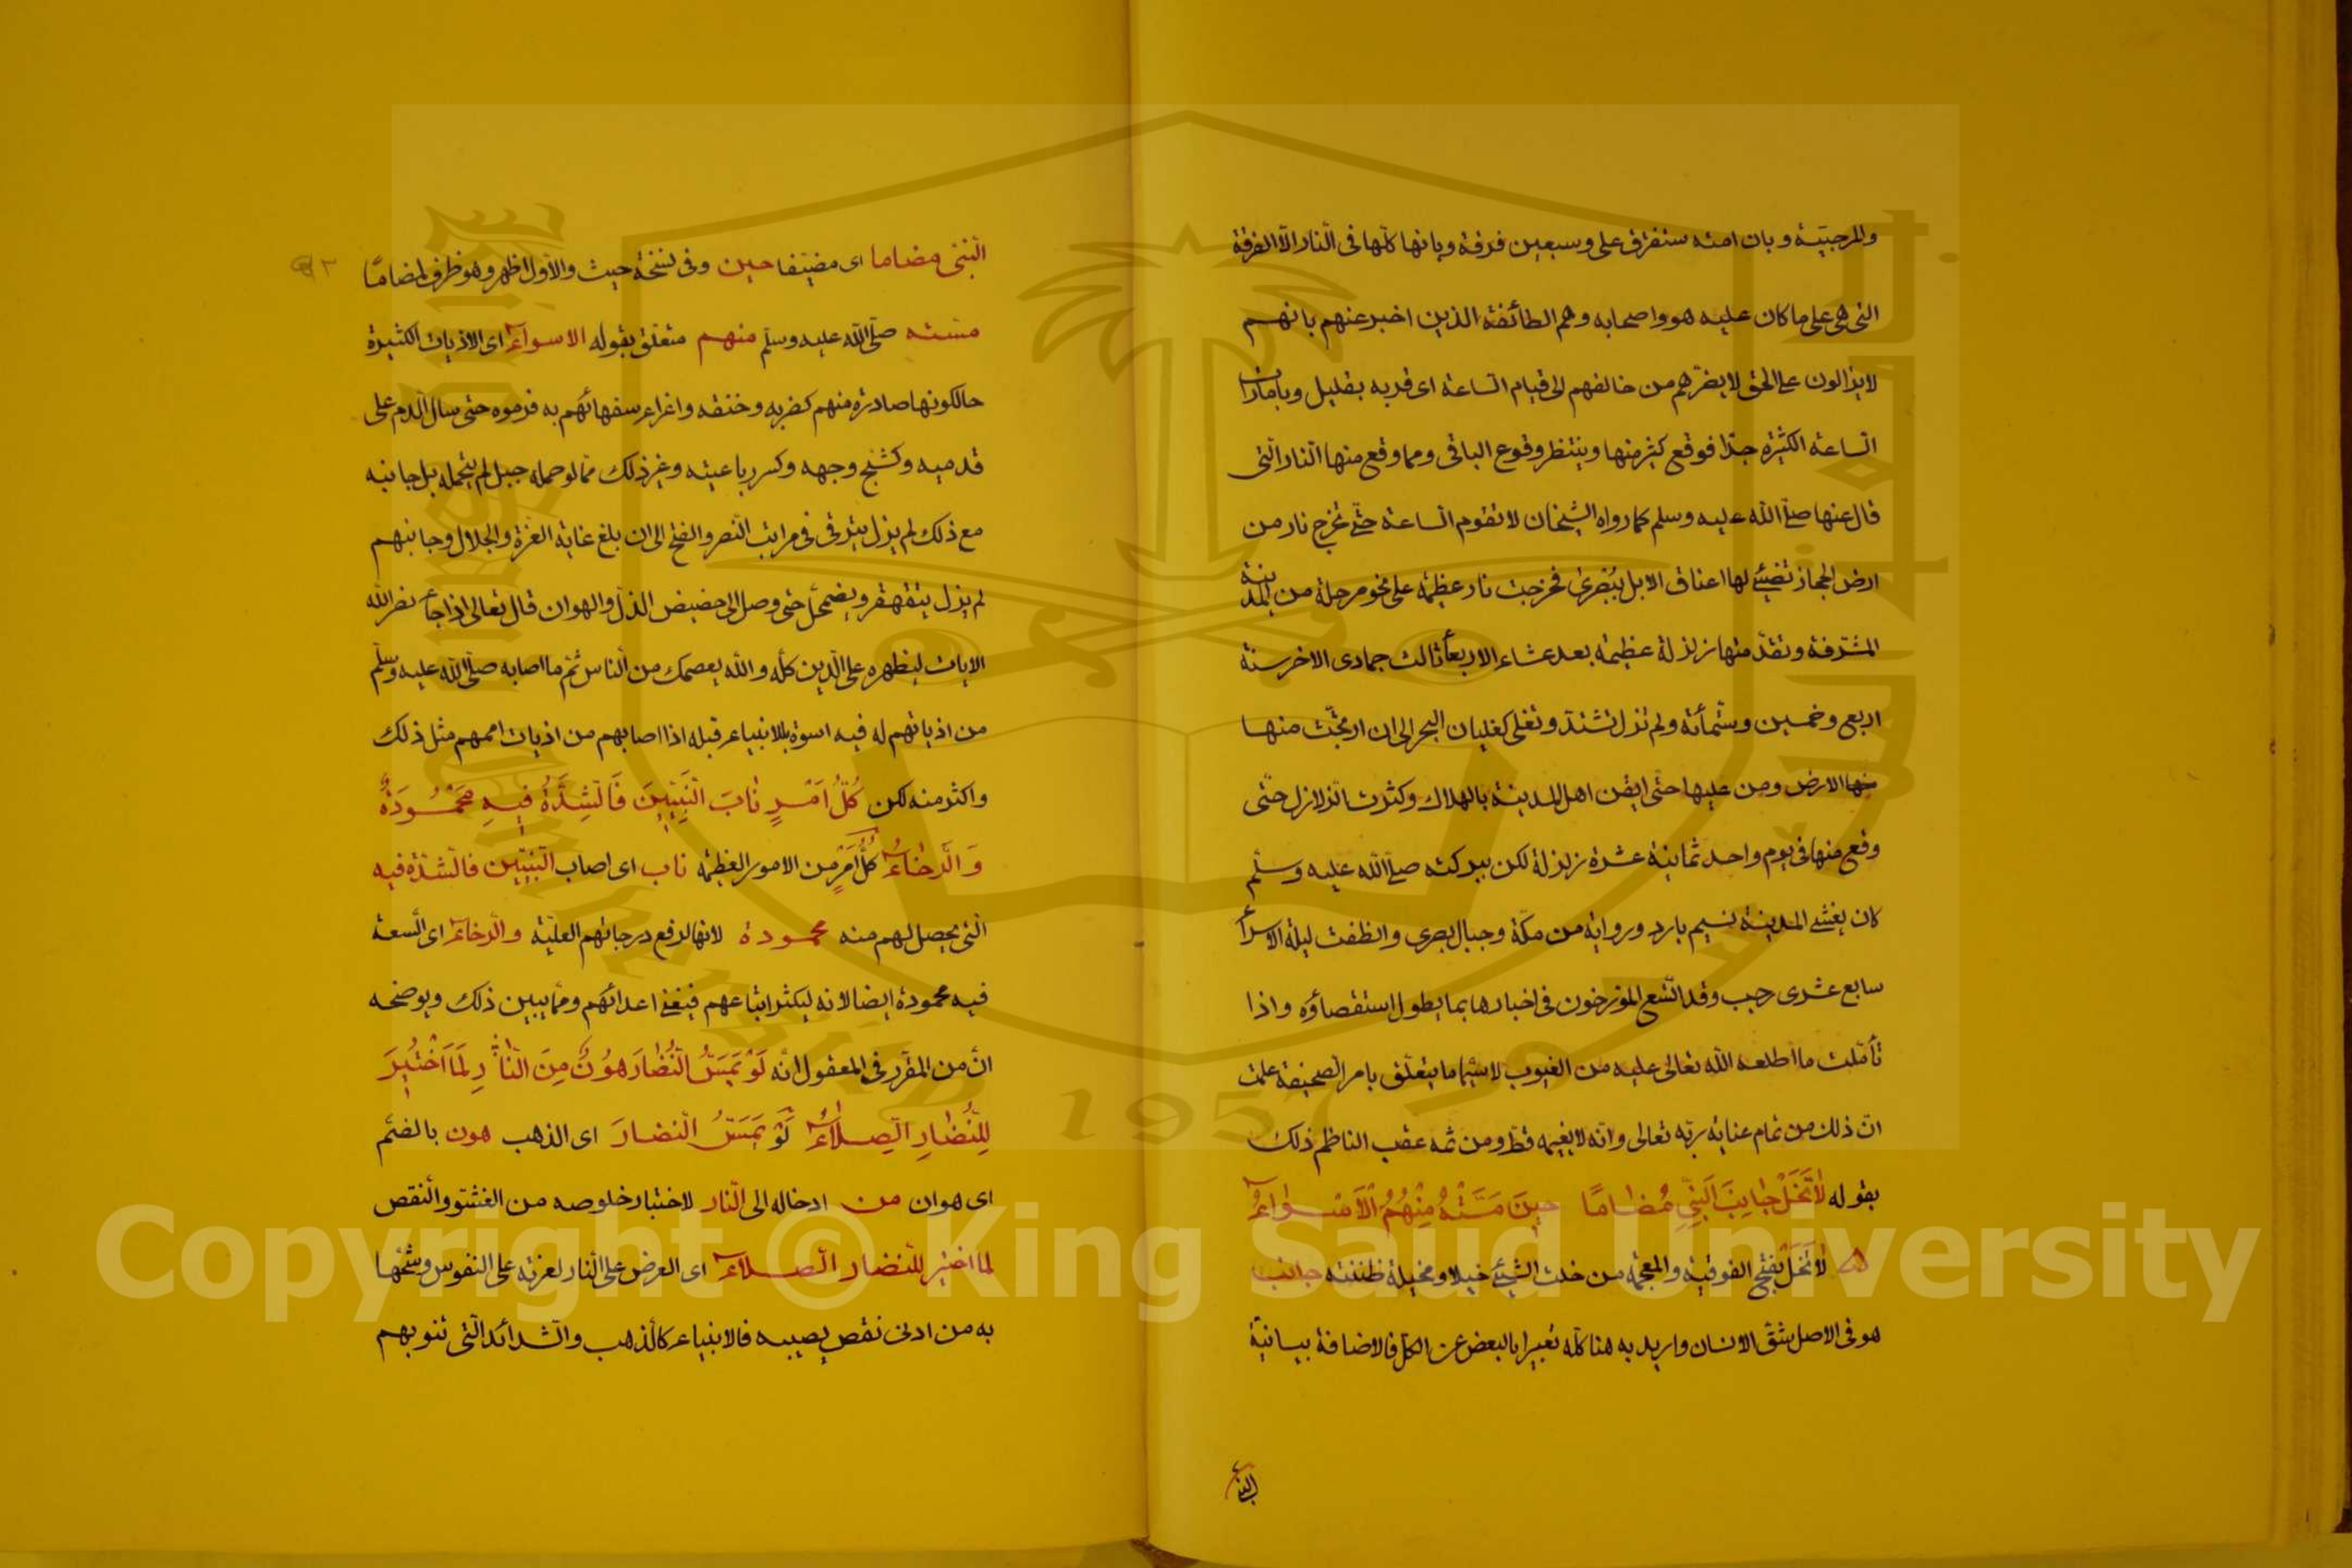 والمرجيّة وبان امته ستفترق على وسبعين فرقة وبانها كلّها فى النار الّا الفرقة
التى هى على ما كان عليه هو واصحابه وهم الطائفة الذين اخبر عنهم بانهم
لا يزالون على الحق لا يضرّهم من خالفهم الى قيام السّاعة اى قربه بقليل وبامارات
السّاعة الكثيرة جدّا فوقع كثير منها وينتظر وقوع الباقى ومما وقع منها النار الّتى
قال عنها صلّى اللّه عليه وسلم كما رواه الشيخان لا تقوم السّاعة حتّى تخرج نار من
ارض الحجاز تضيئ لها اعناق الابل ببُصرى فخرجت نار عظيمة على نحو مرحلة من المدينة
المشرّفة وتقدّمتها زلزلة عظيمة بعد عشاء الاربعا ثالث جمادى الاخر سنة
اربع وخمسين وستّمأئة ولم تزل تشتدّ وتغلى كغليان البحر الى ان ارتجّت منها
منها الارض ومن عليها حتّى ايقن اهل المدينة بالهلاك وكثرت الزلازل حتّى
وقع منها فى يوم واحد ثمانية عشرة زلزلة لكن ببركته صلّى اللّه عليه وسلّم
كان يغشى المدينة نسيم بارد ورواية من مكّة وجبال بصرى وانطفت ليلة الاسرأ
سابع عشرى رجب وقد اتّسع المؤرخون فى اخبارها بما يطول استقصاؤه واذا
تأمّلت ما اطلعه اللّه تعالى عليه من الغيوب لا سيّما ما يتعلّق بامر الصّحيفة علمت
انّ ذلك من تمام عناية ربّه تعالى وانّه لا يغيمه قطّ ومن ثمه عقب الناظم ذلك
بقوله لَا تَخَلْ جَانِبَ النَّبِيِّ مُضَامًا حِينَ مَسَّتْهُ مِنْهُمُ الْاَسْوَاءُ
لا تَخَلْ بفتح الفوقية والمعجمة من خلت الشيئ خيلا ومخيلة ظننته جانب
هو فى الاصل شقّ الانسان واريد به هنا كلّه تعبيرا بالبعض عن الكلّ فالاضافة بيانيّة
النبى
النبّى مضاما اى مضيّفا حين وفى نسخة حيث والاول اظهر وهو ظرف لمضامًا
مسّته صلّى اللّه عليه وسلّم منهم متعلّق بقوله الاسواء اى الاذيات الكثيرة
حالكونها صادرة منهم كضربه وخنقه واغراء سفهائهم به فرموه حتى سال الدّم على
قدميه وكشجّ وجهه وكسر رباعيته وغير ذلك ممّا لو حمله جبل لم يتحمله بل جانبه
مع ذلك لم يزل يترقى فى مراتب النّصر والفتح الى ان بلغ غاية العزّة والجلال وجانبهم
لم يزل يتقهقر ويضمحلّ حتى وصل الى حضيض الذلّ والهوان قال تعالى اذا جأ نصر اللّه
الايات ليظهره على الّدين كلّه واللّه يعصمك من النّاس ثمّ ما اصابه صلّى اللّه عليه وسلّم
من اذياتهم له فيه اسوة بالانبياء قبله اذا اصابهم من اذيات اممهم مثل ذلك
واكثر منه لكن كُلُّ اَمْرٍ نَابَ النَّبِيِّينَ فَالشِّدَّةُ فِيهِ مَحْمُودَةٌ
وَالرَّخَاءُ كُلُّ اَمْرٍ من الامور العظيمة ناب اى اصاب النّبيّين فالشّدّة فيه
الّتى يحصل لهم منه محمودة لانها لرفع درجاتهم العليّة والرّخاء اى السّعة
فيه محمودة ايضا لانه ليكثر اتباعهم فيغنى اعدائهم وممّا يبين ذلك ويوضحه
انّ من المقرّر فى المعقول انّه لَوْ يَمَسُّ النُّضَارَ هُونٌ مِنَ النَّارِ لَمَا اخْتُبِرَ
لِلنُّضَارِ الصِّلَاءُ لَوْ يَمَسُّ النضار اى الذهب هون بالضمّ
اى هوان من ادخاله الى النّار لاختبار خلوصه من الغشّ والنقص
لما اختير للنّضار الصلاء اى العرض على النّار لعزته على النفوس وشحّها
به من ادنى نقص يصيبه فالانبياء كالذهب والشدائد الّتى تنوبهم
Copyright © King Saud University
1957